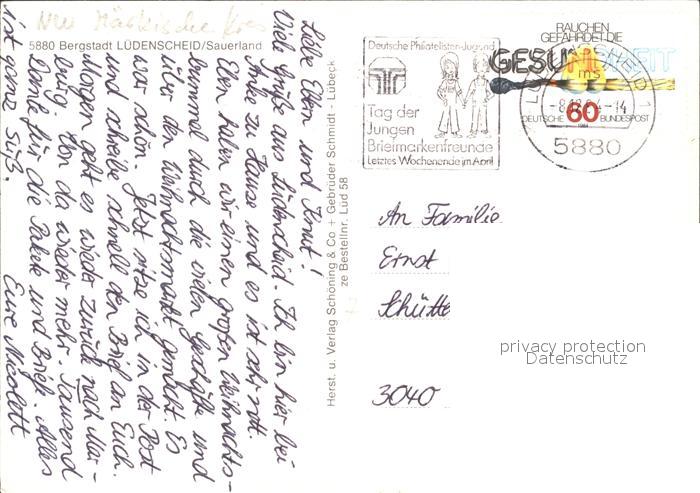 NW Märkischer Kreis
5880 Bergstadt LÜDENSCHEID/Sauerland
Liebe Eltern und Knut!
Viele Grüße aus Lüdenscheid. Ich bin hier bei
Anke zu Hause und es ist sehr nett.
Eben haben wir einen großen Weihnachts-
bummel durch die vielen Geschäfte und
über den Weihnachtsmarkt gemacht. Es
war schön. Jetzt sitze ich in der Post
und schreibe schnell den Brief an Euch.
Morgen geht es wieder zurück nach Mar-
burg. Von da wieder mehr. Tausend
Dank für die Pakete und Brief. Alles
ist ganz süß.
Eure Nicolett
Herst. u. Verlag Schöning & Co + Gebrüder Schmidt - Lübeck
ze Bestellnr. Lüd 58
Deutsche Philatelisten-Jugend
Tag der
Jungen
Briefmarkenfreunde
Letztes Wochenende im April
RAUCHEN
GEFÄHRDET DIE
GESUNDHEIT
ms
-8.12.84-14
DEUTSCHE 60 BUNDESPOST
1984
5880
An Familie
Ernst
Schütte
3040
privacy protection
Datenschutz